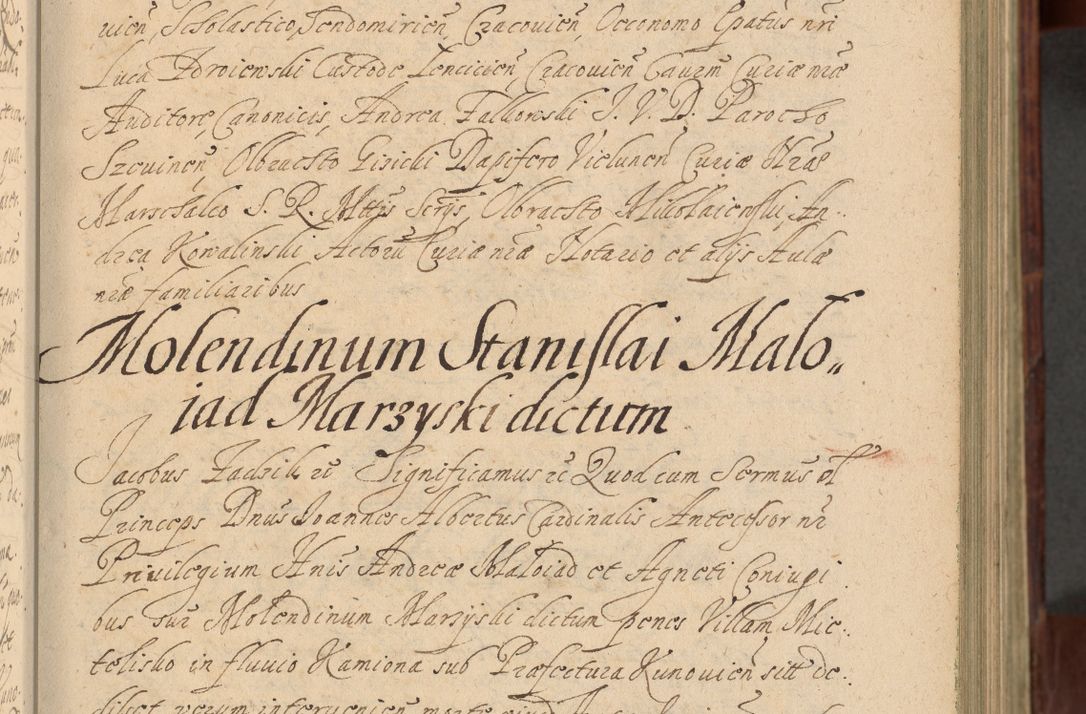 uicn̄, Scholastico, Sendomiricn̄, Cracouicn̄, Oeconomo Ep̄atus nr̄i
Luca Zdroiewski Custode Lenciciēn̄, Cracouien̄ Caurm̄ Curiæ nr̄æ
Auditore, Canonicis, Andrea Falkowski I. V. D. Parocho
Olbrachto Gisicki Dapifero Vielunen̄ Curiæ Nr̄æ
Marschalco S. R. Mttis Scrijs, Olbrachto Mikołaiewski, An-
drea Kowalinski Actorū Curiæ nr̄æ Notario et alijs Aulæ
nr̄æ familiaribus
Molendinum Stanislai Malo„
iad Marzyski dictum
Jacobus Zadzik &c Significamus &c Quod cum Sermus et
Princeps Dnus Joannes Albertus Cardinalis Antecessor nr̄
Priuilegium Hn̄is Andreæ Małoiad et Agneti Coniugi
bus sup̄ Molendinum Marzyski dictum penes Villam Mic-
telisko in fluuio Kamiona sub Præfectura Kunouien̄ sitt de-